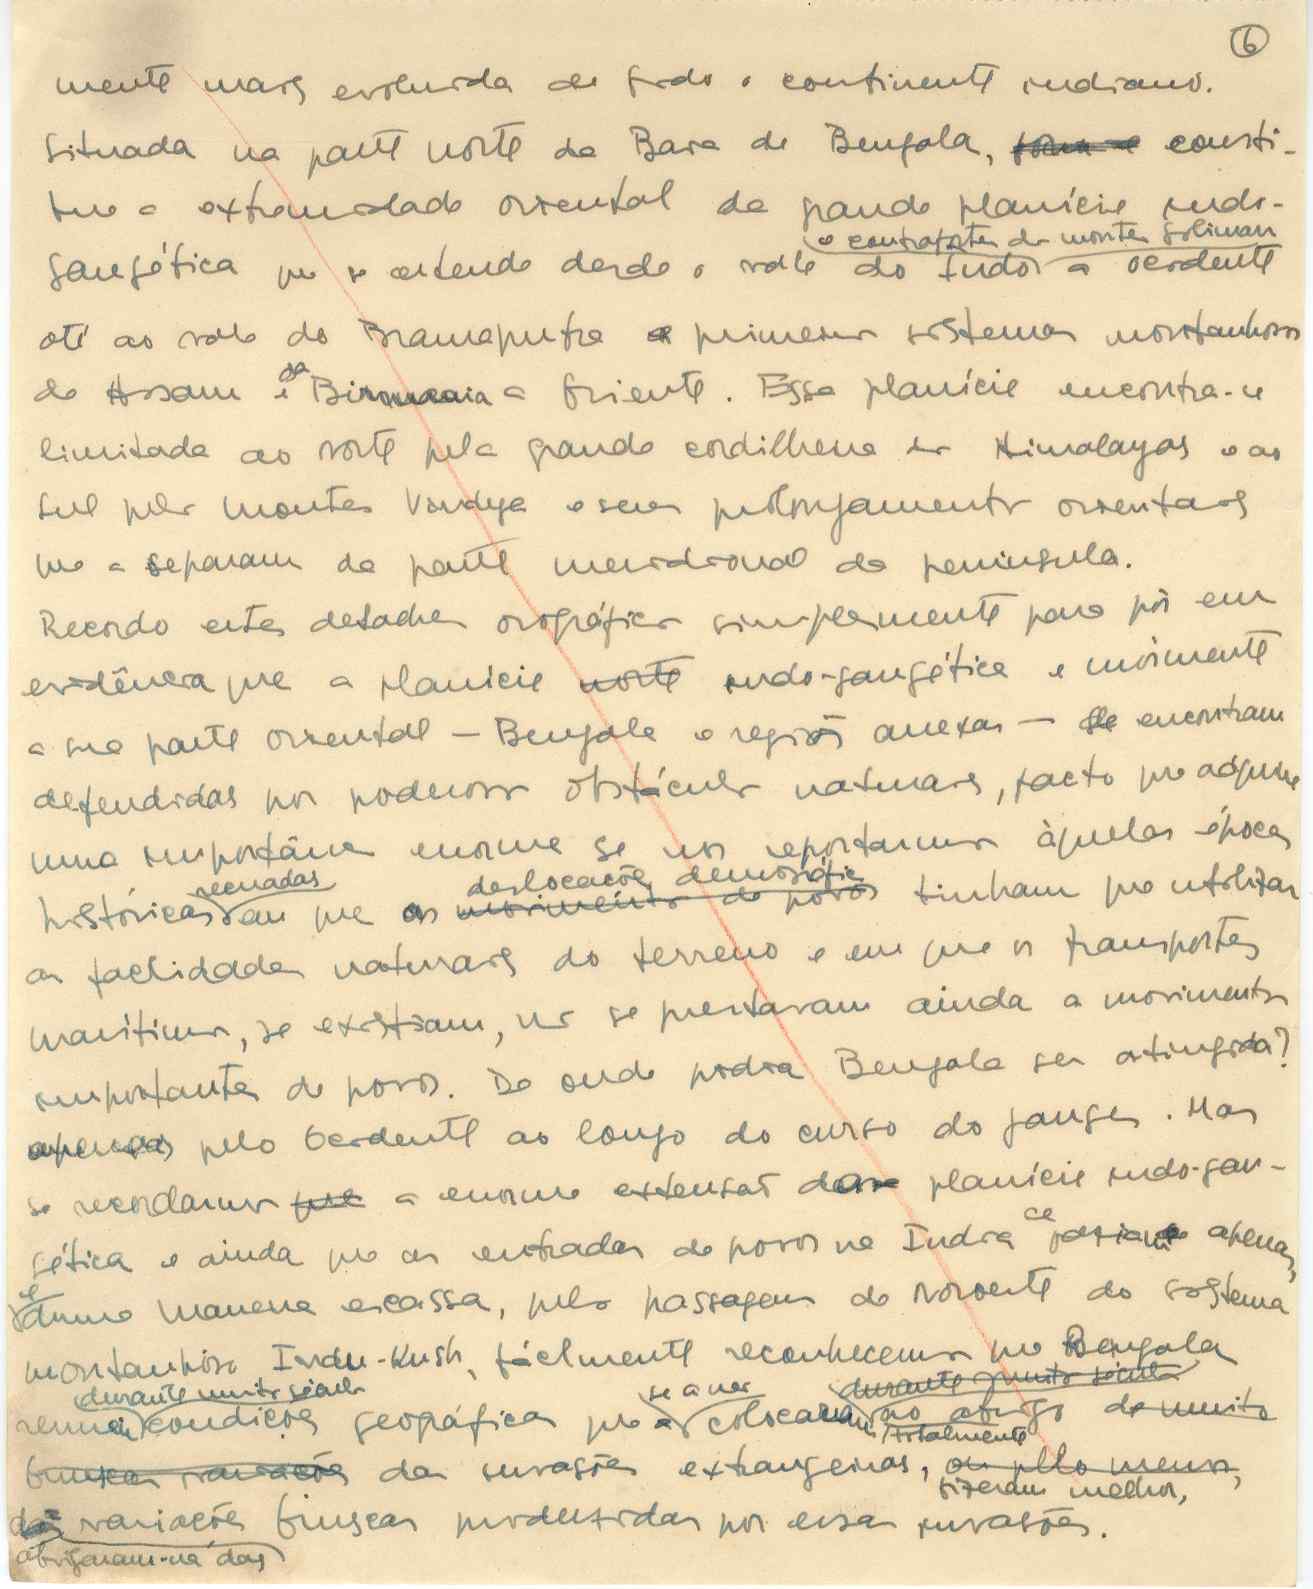 6
mente mais evoluida de todo o continente indiano.
Situada na parte norte da Baía de Bengala, consti-
tue a extremidade oriental da grande planície indo-
e contrafortes do montes Soliman
gangética que se estende desde o vale do Indo a ocidente
até ao vale do Bramaputra e primeiros sistemas montanhosos
do Assam e da Birmania a Oriente. Essa planície encontra-se
limitada ao norte pela grande cordilheira dos Himalayas e ao
sul pelos montes Vindya e seus prolongamentos orientais
que a separam da parte meridional da península.
Recordo estes detalhes orográficos simplesmente para pôr em
evidência que a planície norte indo-gangética e mórmente
a sua parte oriental — Bengala e regiões anexas — se encontram
defendidas por poderosos obstáculos naturais, facto que adquire
uma importância enorme se nos reportarmos àquelas épocas
recuadas deslocações demográficas
históricas em que as movimentos de povos tinham que utilizar
as facilidades naturais do terreno e em que os transportes
marítimos, se existiam, não se prestavam ainda a movimentos
importantes de povos. De onde podia Bengala ser atingida?
apenas pelo Ocidente ao longo do curso do Ganges. Mas
se recordarmos que a enorme extensão da planície indo-gan-
gética e ainda que as entradas de povos na India apenas,
e duma maneira escassa, pela passagem do noroeste do sistema
montanhoso Indu-Kush, fácilmente reconhecemos que Bengala
durante muitos séculos se a não durante muitos séculos
reunia condições geográficas que a colocaram ao abrigo de muito
totalmente
bruscas variações das invasões extrangeiras, ou pelo menos,
fizeram melhor,
das variações bruscas produzidas por essas invasões.
abrigaram-na das